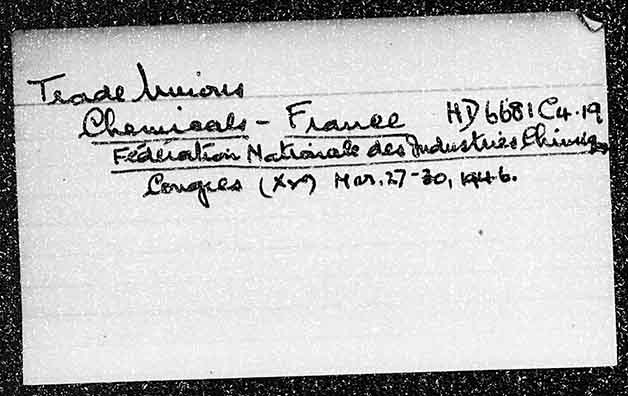 Trade Unions
Chemicals - France HD6681C4.19
Fédération Nationale des Industries Chimiq
Congrès (XVe) Mar. 27-30, 1946.